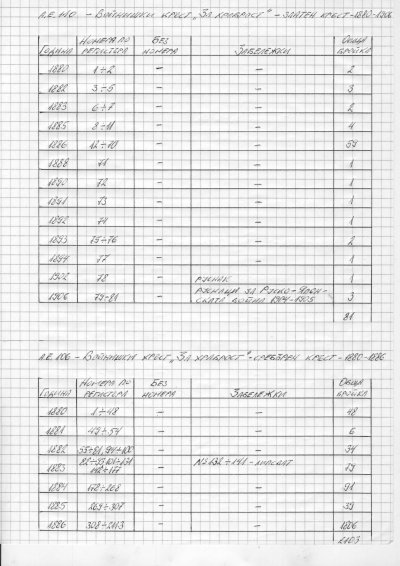 А.Е. 110 - Войнишки кръст „За храброст" - златен кръст - 1880-1906
Година Номера по регистъра Без номера Забележки Обща бройка
1880 1÷2 - - 2
1882 3÷5 - - 3
1883 6÷7 - - 2
1885 8÷11 - - 4
1886 12÷70 - - 59
1888 71 - - 1
1890 72 - - 1
1891 73 - - 1
1892 74 - - 1
1893 75÷76 - - 2
1894 77 - 1
1902 78 - руснак 1
1906 79-81 - руснаци за Руско-Японската война 1904-1905 3
81
А.Е. 106 - Войнишки кръст „За храброст" - сребърен кръст - 1880-1886
Година Номера по регистъра Без номера Забележки Обща бройка
1880 1÷48 - - 48
1881 49÷54 - - 6
1882 55÷81, 94÷100 - - 34
1883 101÷131 142÷177 - №132÷141 - липсват 79
1884 178÷268 - - 91
1885 269÷307 - - 39
1886 308÷2113 - - 1806
2103